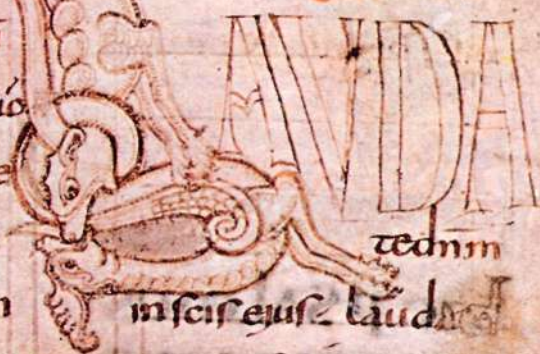 LAVDA
te dnm̄
in scis eius. laud